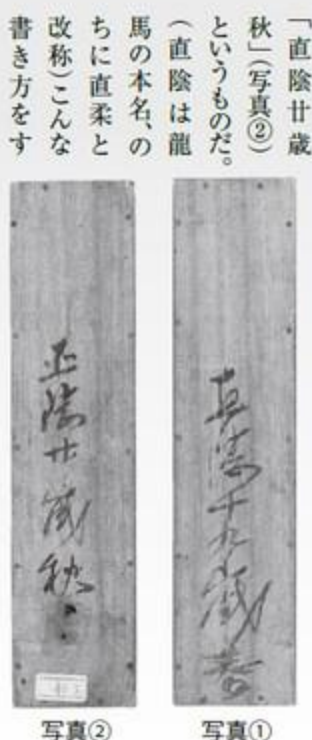 「直陰廿歳
秋」(写真②)
というものだ。
(直陰は龍
馬の本名、の
ちに直柔と
改称)こんな
書き方をす
直陰十九歳春
写真①
直陰廿歳秋
写真②